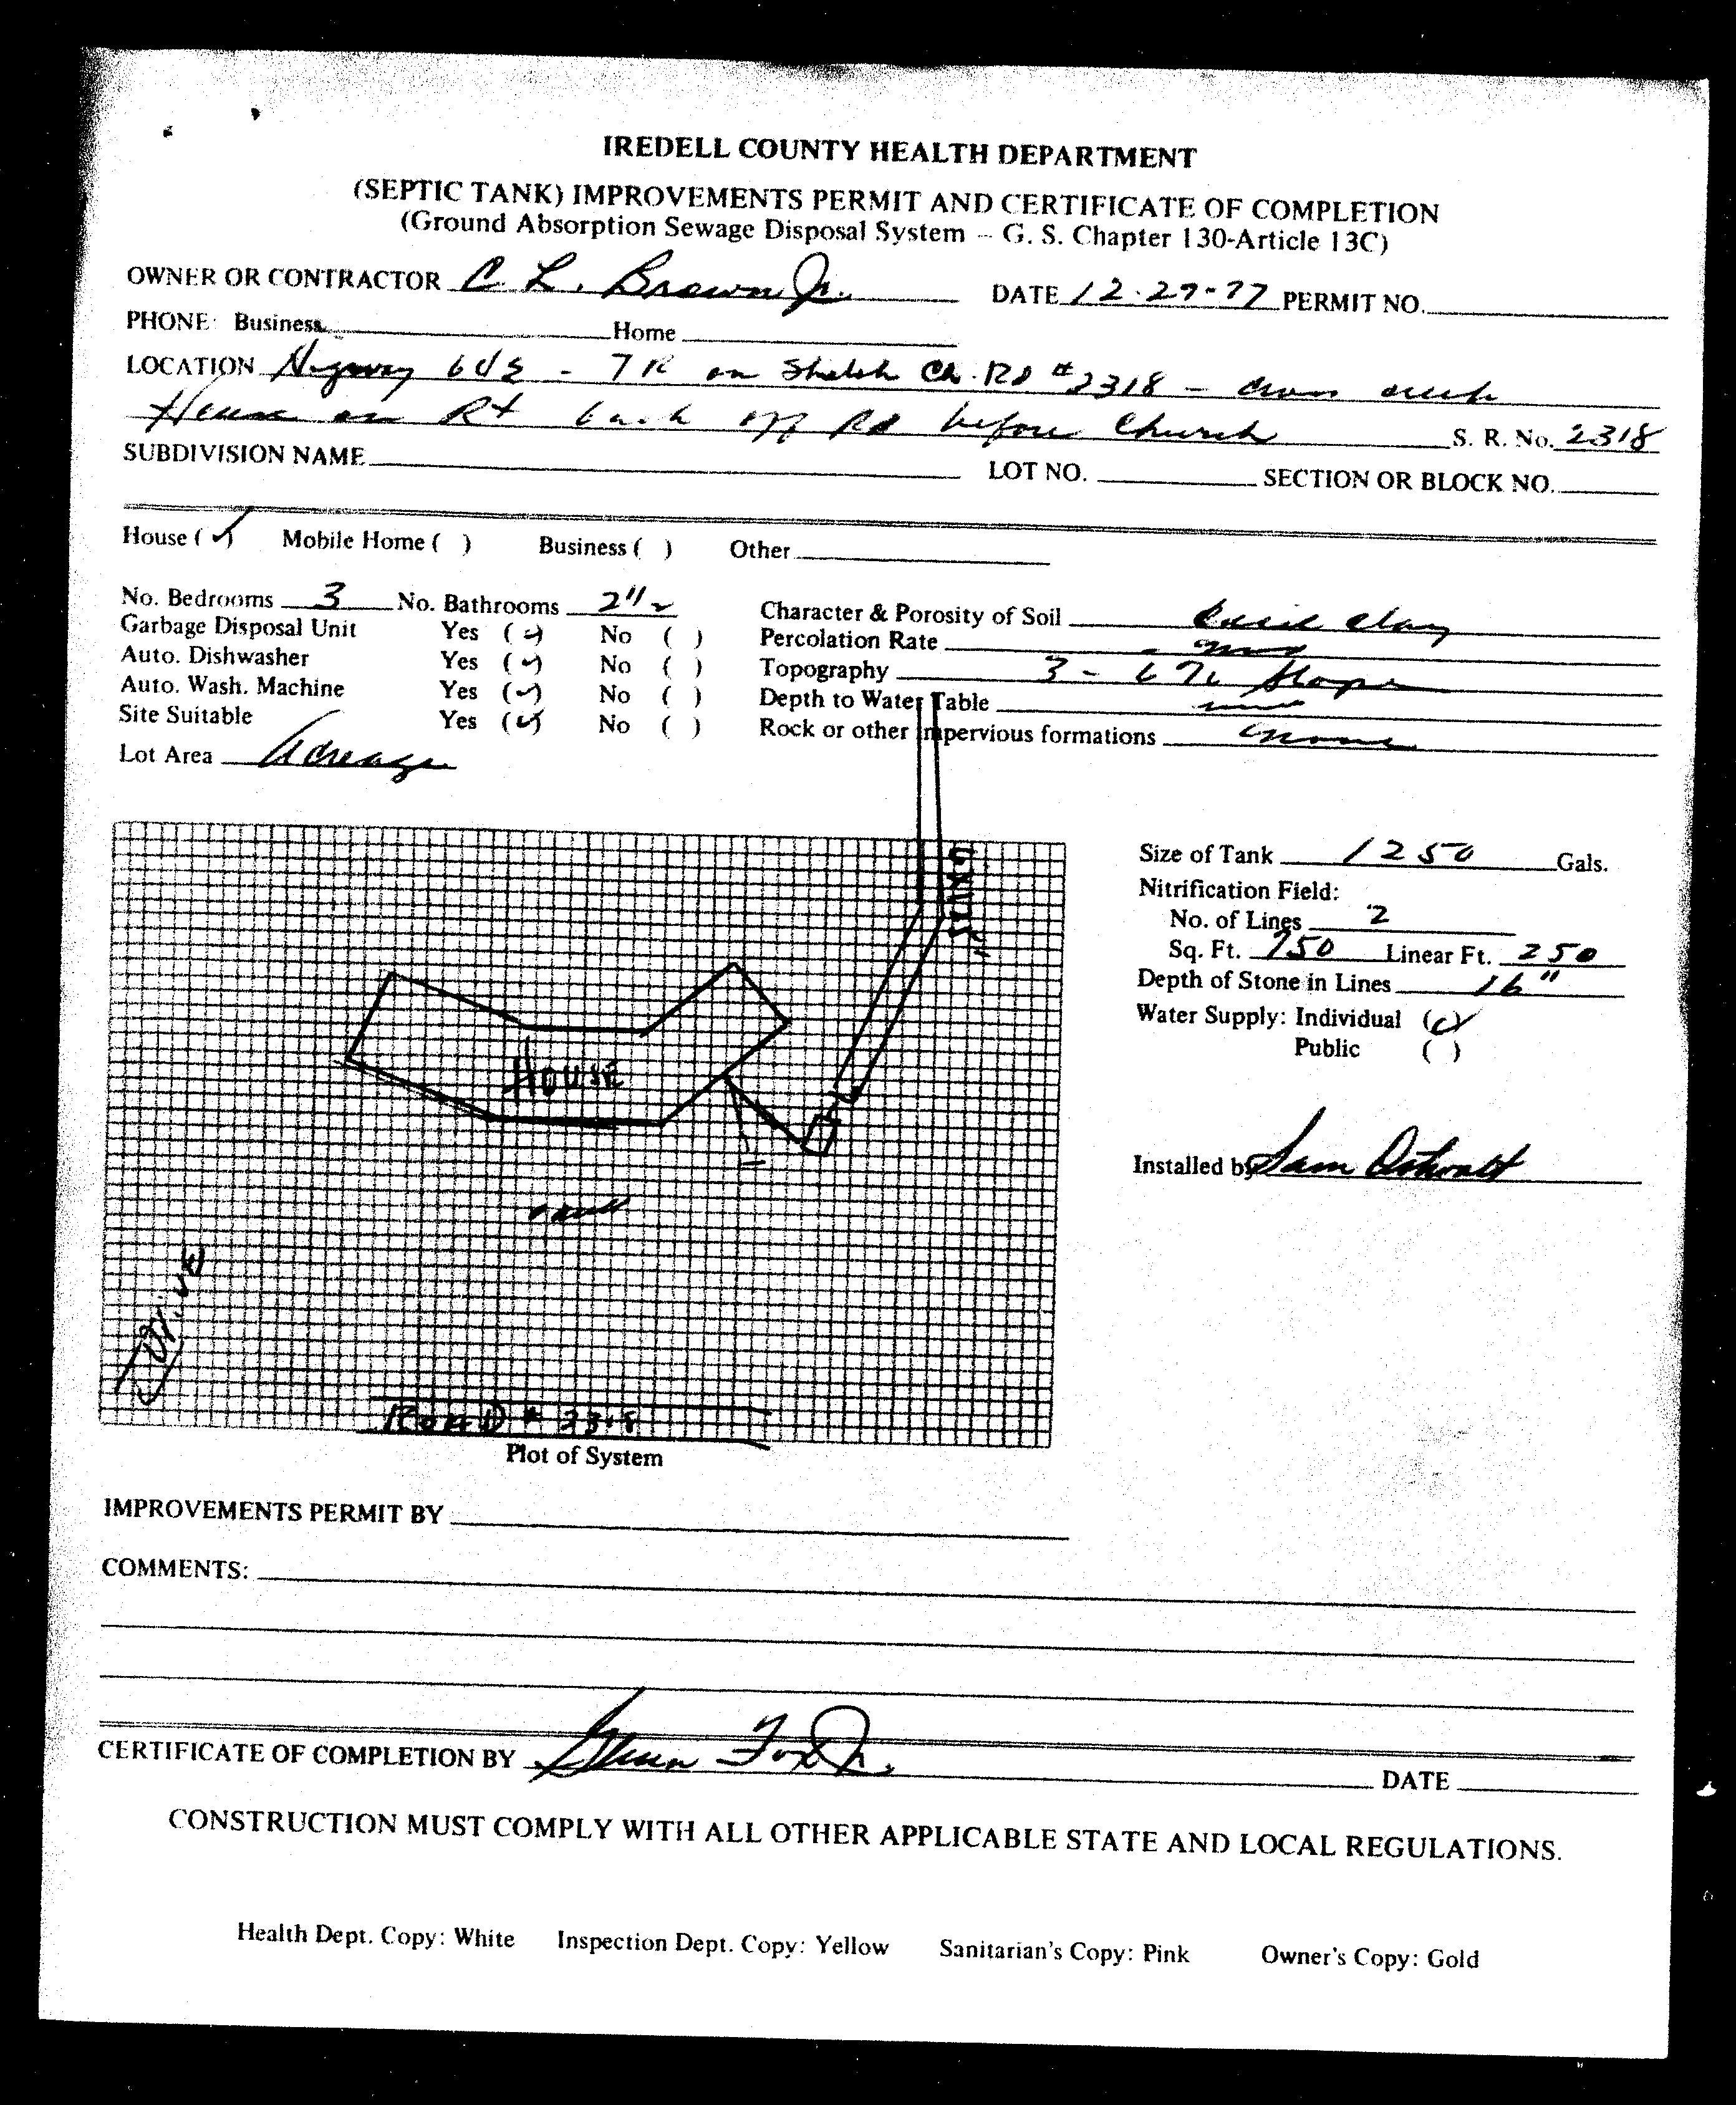 IREDELL COUNTY HEALTH DEPARTMENT
(SEPTIC TANK) IMPROVEMENTS PERMIT AND CERTIFICATE OF COMPLETION
(Ground Absorption Sewage Disposal System – G. S. Chapter 130-Article 13C)
OWNER OR CONTRACTOR C. L. Brown Jr. DATE 12-29-77 PERMIT NO.
PHONE: Business Home
LOCATION 64E - TR on Ch. Rd #2318 - creek
House on Rt back off Rd before Church S. R. No. 2318
SUBDIVISION NAME LOT NO. SECTION OR BLOCK NO.
House (✓) Mobile Home ( ) Business ( ) Other
No. Bedrooms 3 No. Bathrooms 2 1/2 Character & Porosity of Soil clay
Garbage Disposal Unit Yes (✓) No ( ) Percolation Rate
Auto. Dishwasher Yes (✓) No ( ) Topography 3 - 6 % Slope
Auto. Wash. Machine Yes (✓) No ( ) Depth to Water Table
Site Suitable Yes (✓) No ( ) Rock or other impervious formations none
Lot Area Acreage
Size of Tank 1250 Gals.
Nitrification Field:
No. of Lines 2
Sq. Ft. 750 Linear Ft. 250
Depth of Stone in Lines 16"
Water Supply: Individual (✓)
Public ( )
Installed by Sam Ostwalt
HOUSE
Drive
ROAD # 2318
Plot of System
IMPROVEMENTS PERMIT BY
COMMENTS:
CERTIFICATE OF COMPLETION BY Glenn Fox Jr. DATE
CONSTRUCTION MUST COMPLY WITH ALL OTHER APPLICABLE STATE AND LOCAL REGULATIONS.
Health Dept. Copy: White Inspection Dept. Copy: Yellow Sanitarian's Copy: Pink Owner's Copy: Gold